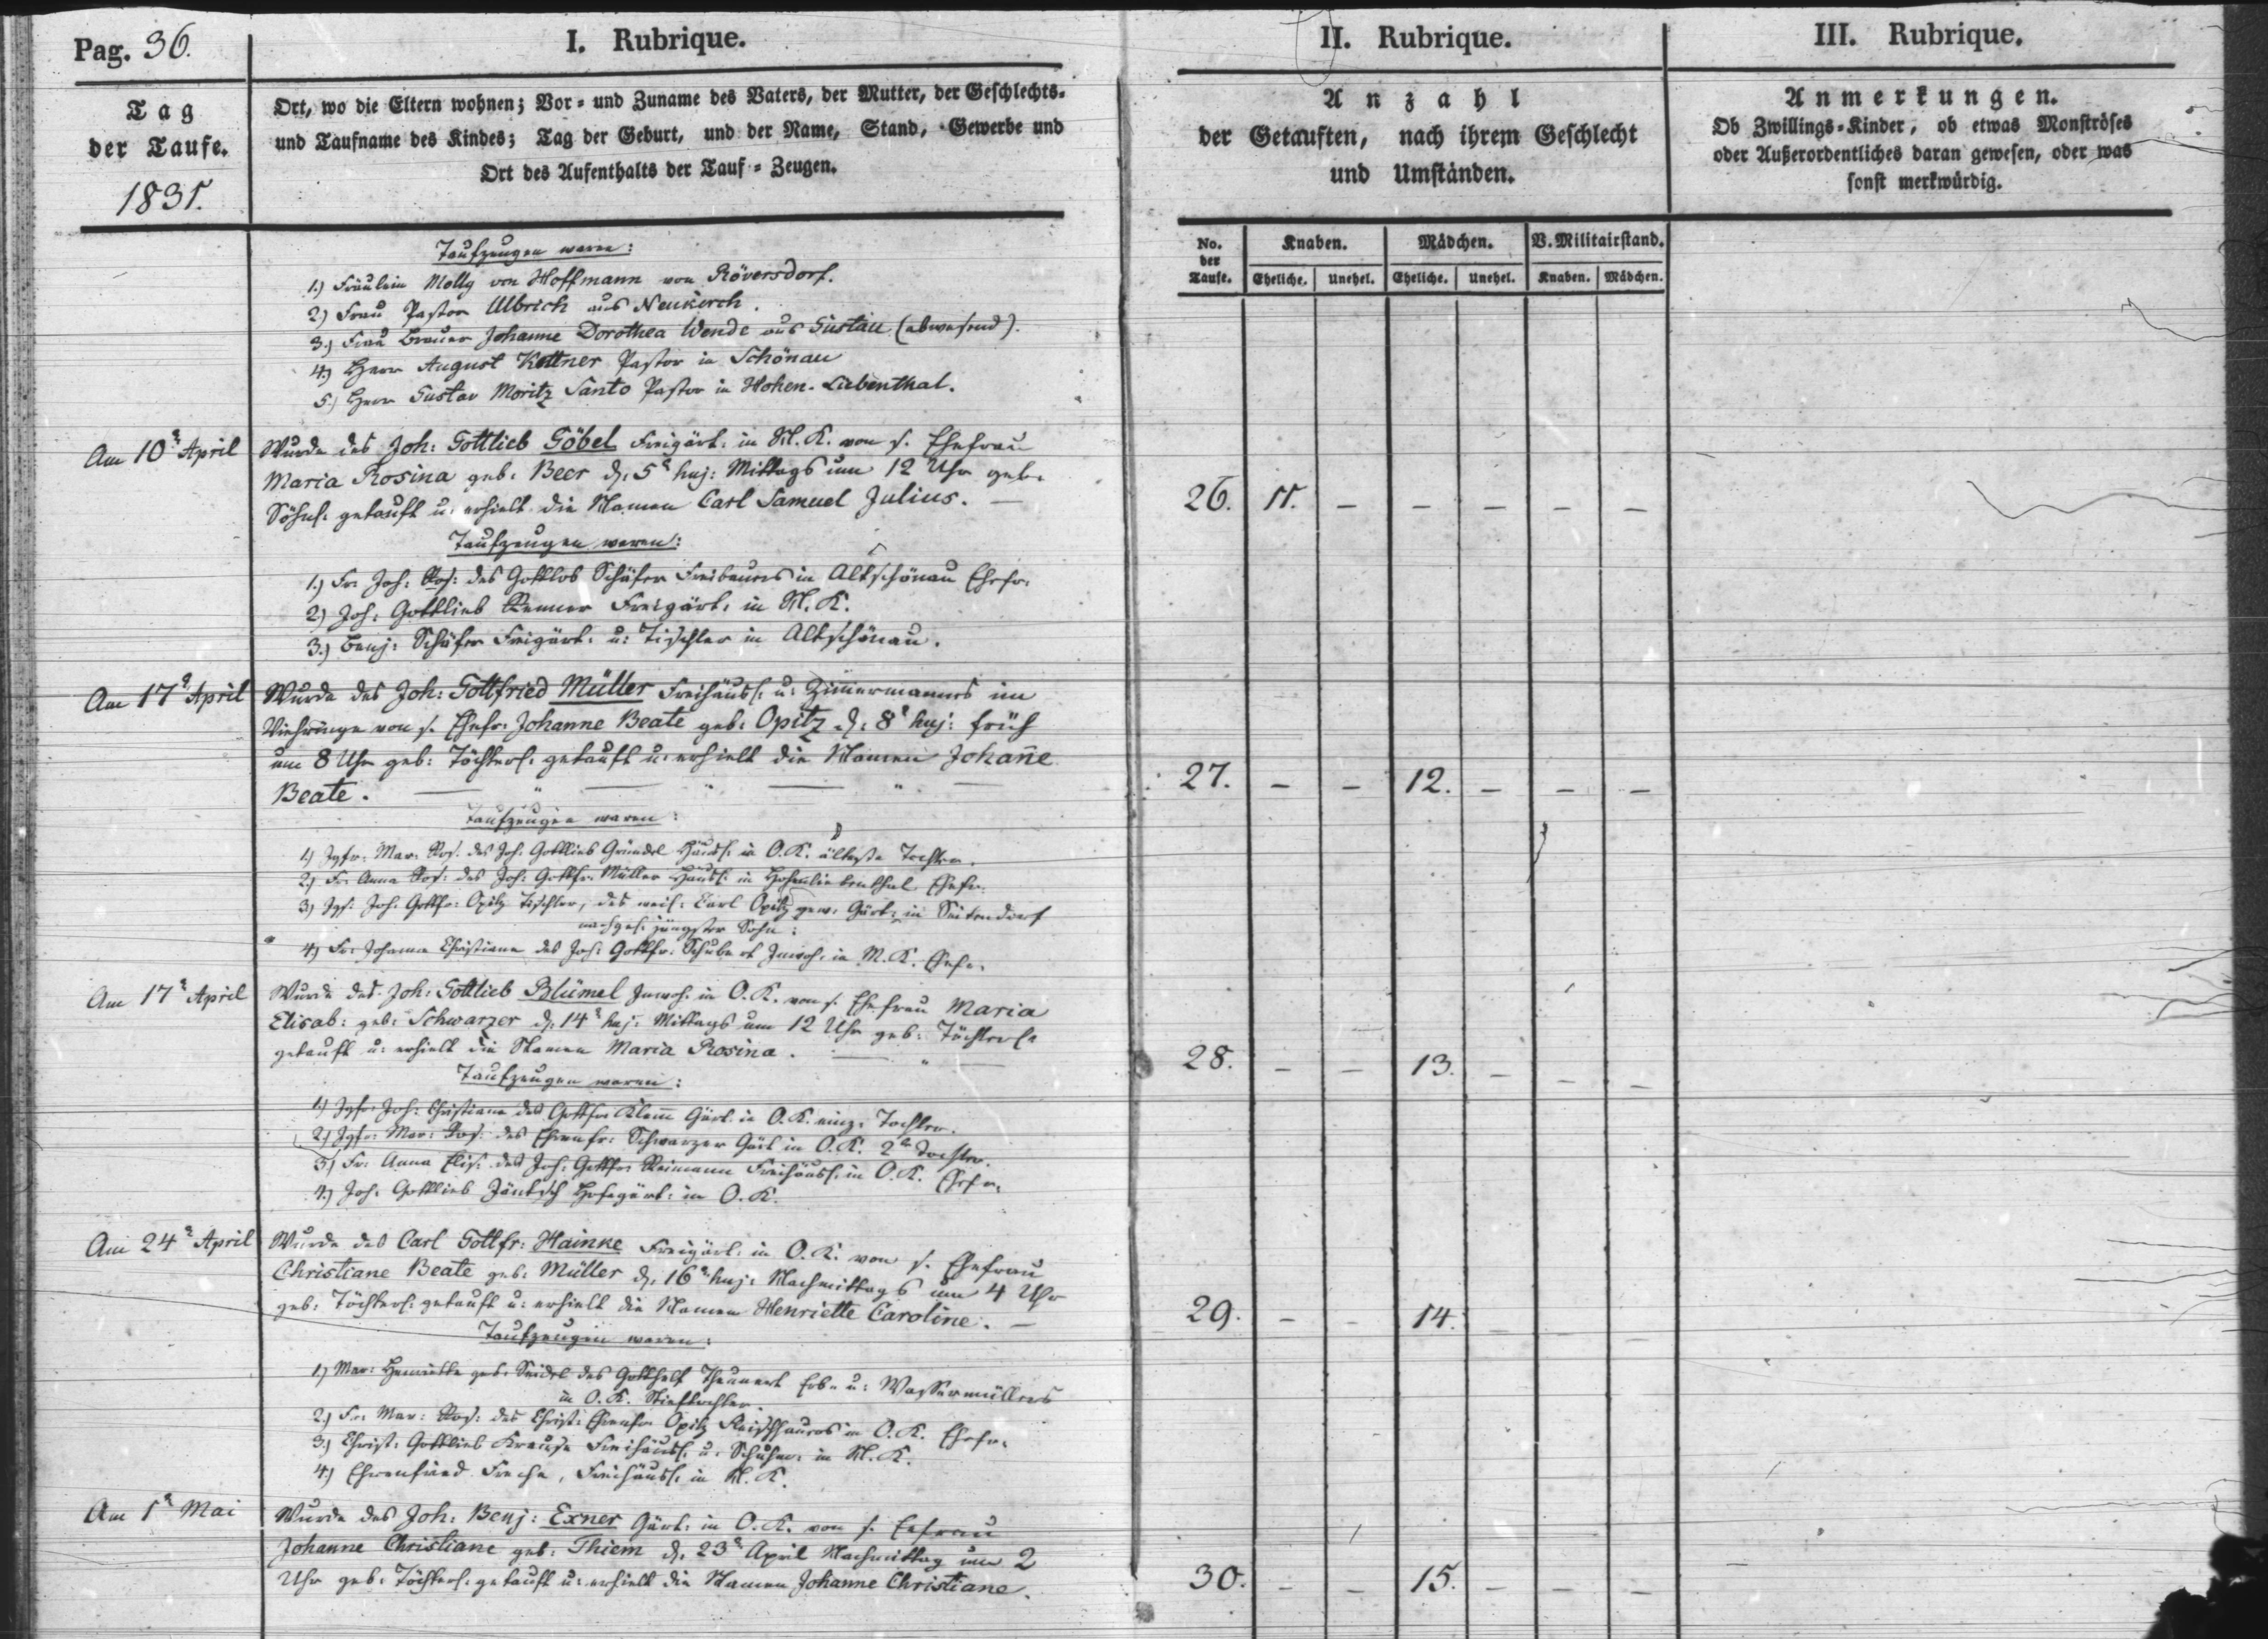 Pag. 36.
I. Rubrique.
II. Rubrique.
III. Rubrique.
Tag
der Taufe.
1831.
Ort, wo die Eltern wohnen; Vor- und Zuname des Vaters, der Mutter, der Geschlechts-
und Taufname des Kindes; Tag der Geburt, und der Name, Stand, Gewerbe und
Ort des Aufenthalts der Tauf-Zeugen.
Anzahl
der Getauften, nach ihrem Geschlecht
und Umständen.
Anmerkungen.
Ob Zwillings-Kinder, ob etwas Monströses
oder Außerordentliches daran gewesen, oder was
sonst merkwürdig.
No. der Taufe.
Knaben.
Mädchen.
V. Militairstand.
Eheliche. Unehel. Eheliche. Unehel. Knaben. Mädchen.
Taufzeugen waren:
1.) Fräulein Molly von Hoffmann von Röversdorf.
2.) Frau Pastor Ulbrich aus Neukirch.
3.) Frau Brauer Johanne Dorothea Wende aus Gustau (abwesend).
4.) Herr August Kettner Pastor in Schönau
5.) Herr Gustav Moritz Santo Pastor in Hohen-Liebenthal.
Am 10t April
Wurde des Joh: Gottlieb Göbel Freigärt: in N. K. von s. Ehefrau
Maria Rosina geb: Beer d. 5t huj: Mittags um 12 Uhr geb.
Söhnl. getauft u. erhielt die Namen Carl Samuel Julius. —
26. 11. – – – – –
Taufzeugen waren:
1.) Fr. Joh: Ros: des Gottlob Schäfer Freibauers in Altschönau Ehefr.
2.) Joh: Gottlieb Renner Freigärt: in N. K.
3.) Benj: Schäfer Freigärt: u: Tischler in Altschönau.
Am 17t April
Wurde des Joh: Gottfried Müller Freihäusl: u: Zimmermanns im
von s. Ehefr: Johanne Beate geb: Opitz d. 8t huj: früh
um 8 Uhr geb: Töchterl: getauft u: erhielt die Namen Johanne
Beate.
27. – – 12. – – –
Taufzeugen waren:
1.) Jgfr: Mar: Ros: des Joh: Gottlieb Gründel Häusl: in O. K. älteste Tochter.
2.) Fr. Anna Ros: des Joh: Gottfr: Müller Häusl: in Hohenliebenthal Ehefr.
3.) Jgs: Joh: Gottfr: Opitz Tischler, des weil: Carl Opitz gew: Gärt: in Seitendorf
nachgel: jüngster Sohn:
4.) Fr. Johanne Christiane des Joh: Gottfr: Schubert Inwoh: in M. K. Ehefr.
Am 17t April
Wurde des Joh: Gottlieb Blümel Inwoh: in O. K. von s. Ehefrau Maria
Elisab: geb: Schwarzer d. 14t huj: Mittags um 12 Uhr geb: Töchterl:
getauft u: erhielt die Namen Maria Rosina.
28. – – 13. – – –
Taufzeugen waren:
1.) Jgfr: Joh: Christiane des Gottfr: Klem̄ Gärt: in O. K. einz: Tochter.
2.) Jgfr: Mar: Ros: des Ehrenfr: Schwarzer Gärt: in O. K. 2te Tochter.
3.) Fr. Anna Elis: des Joh: Gottfr: Reimann Freihäusl: in O. K. Ehefr.
4.) Joh: Gottlieb Jäntsch Hofegärt: in O. K.
Am 24t April
Wurde des Carl Gottfr: Hainke Freigärt: in O. K. von s. Ehefrau
Christiane Beate geb: Müller d. 16t huj: Nachmittags um 4 Uhr
geb: Töchterl: getauft u: erhielt die Namen Henriette Caroline. —
29. – – 14. – – –
Taufzeugen waren:
1.) Mar: Henriette geb: Seidel des Gotthelf Theunert Erb- u: Wassermüllers
in O. K. Stieftochter.
2.) Fr. Mar: Ros: des Christ: Ehrenfr: Opitz in O. K. Ehefr.
3.) Christ: Gottlieb Krause Freihäusl: u: Schuhm: in N. K.
4.) Ehrenfried Freche, Freihäusl: in N. K.
Am 1t Mai
Wurde des Joh: Benj: Exner Gärt: in O. K. von s. Ehefrau
Johanne Christiane geb: Thiem d. 23t April Nachmittag um 2
Uhr geb: Töchterl: getauft u: erhielt die Namen Johanne Christiane.
30. – – 15. – – –